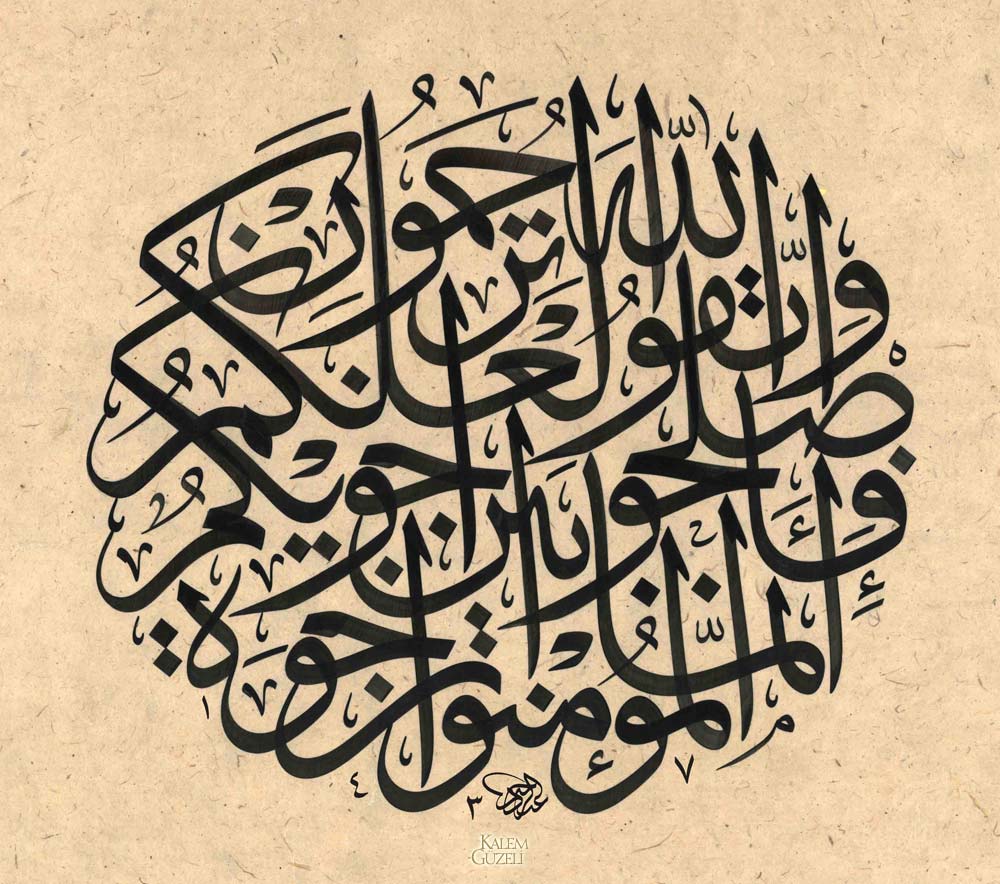 إِنَّمَا الْمُؤْمِنُونَ إِخْوَةٌ
فَأَصْلِحُوا بَيْنَ أَخَوَيْكُمْ
وَاتَّقُوا اللَّهَ لَعَلَّكُمْ تُرْحَمُونَ
١ ٤ ٣ ٧
KALEM
GÜZELİ